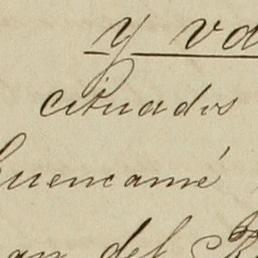 y va
cituados
Cuencamé
an del R